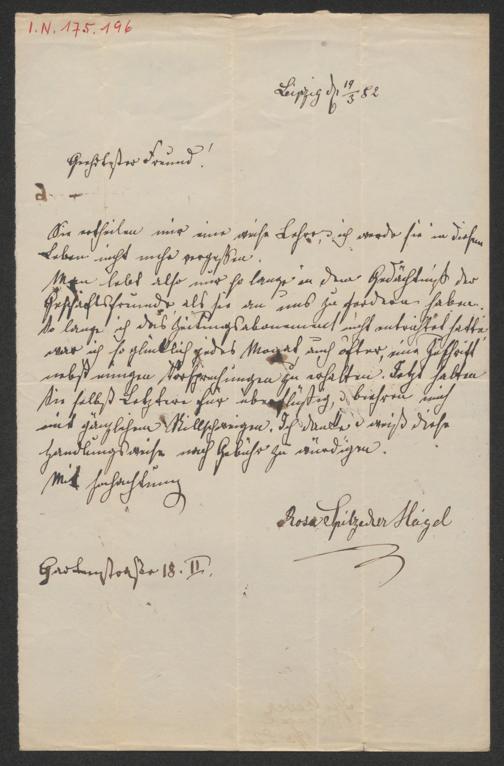 I.N. 175.196
Leipzig d. 19/5 82
Geehrtester Freund!
Sie ertheilen mir eine weise Lehre, ich werde sie in diesem
Leben nicht mehr vergessen.
Man lebt also nur so lange in dem Gedächtniß der
Geschäftsfreunde als sie an uns zu fordern haben.
So lange ich das Zeitungsabonement nicht entrichtet hatte
war ich so glücklich jedes Monat auch öfter, eine Zuschrift
nebst einigen Versprechungen zu erhalten. Jetzt halten
Sie selbst Letztere für überflüßig, & beehren mich
mit gänzlichem Stillschweigen. Ich danke & weiß diese
Handlungsweise nach Gebühr zu würdigen.
Mit Hochachtung
Rosa Spitzeder Hagel
Gartenstraße 18. II.